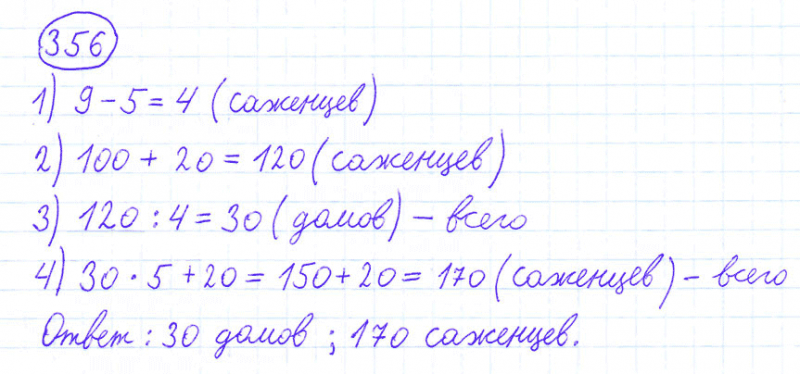 356
1) 9 - 5 = 4 (саженцев)
2) 100 + 20 = 120 (саженцев)
3) 120 : 4 = 30 (домов) - всего
4) 30 · 5 + 20 = 150 + 20 = 170 (саженцев) - всего
Ответ : 30 домов ; 170 саженцев.